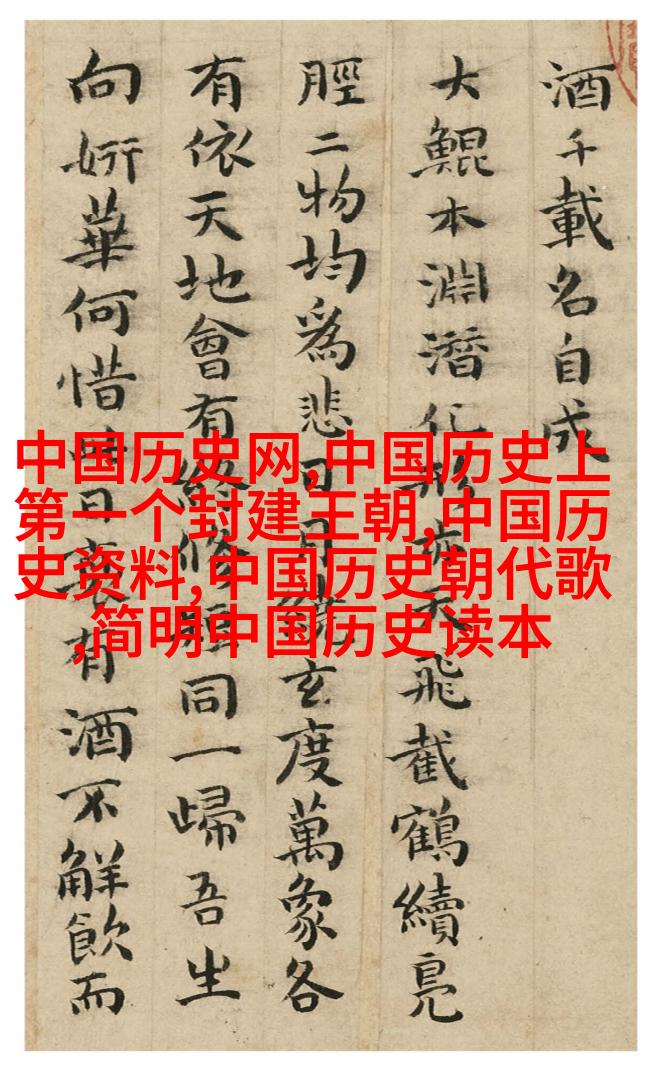 酒千載名自成
大鯤本淵潛化天飛截鶴續鳧
脛二物均爲悲日月玄度萬象各
有依天地會有終修短同一歸吾生
向妍華何惜時日有酒不解飲而
中国历史网,中国历史上
第一个封建王朝,中国历
史资料,中国历史朝代歌
,简明中国历史读本